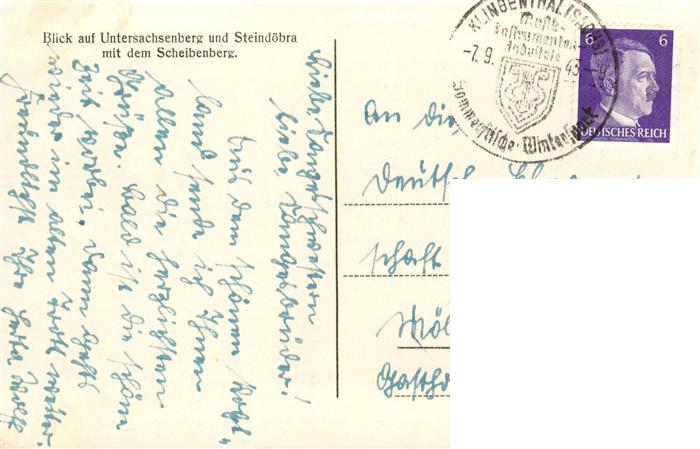 Blick auf Untersachsenberg und Steindöbra
mit dem Scheibenberg.
Liebe Sangesschwestern
liebe Sangesbrüder!
Aus dem schönen Vogt-
land sende ich Ihnen
allen die herzlichsten
Grüße. Bald ist die schöne
Zeit vorbei, dann geht's
wieder im alten Trott weiter.
Freundlichst Ihre Herta
KLINGENTHAL (SACHS)
Musik-
instrumenten-
Industrie
-7.9.43.
Sommerfrische · Wintersport
6 6
DEUTSCHES REICH
An die
Deutsche
schaft
Möl
Gasth